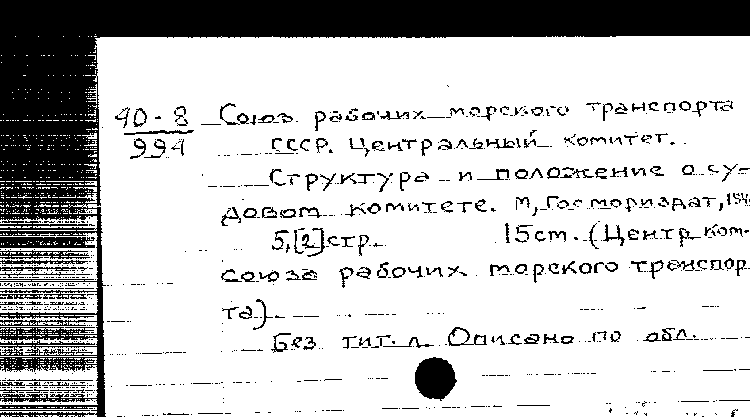 40-8 Союз рабочих морского транспорта
994 СССР. Центральный комитет.
Структура и положение о су-
довом комитете. М, Госмориздат,
5,[2]стр. 15cm. (Центр ком.
союза рабочих морского транспор
та).
Без тит. л. Описано по обл.